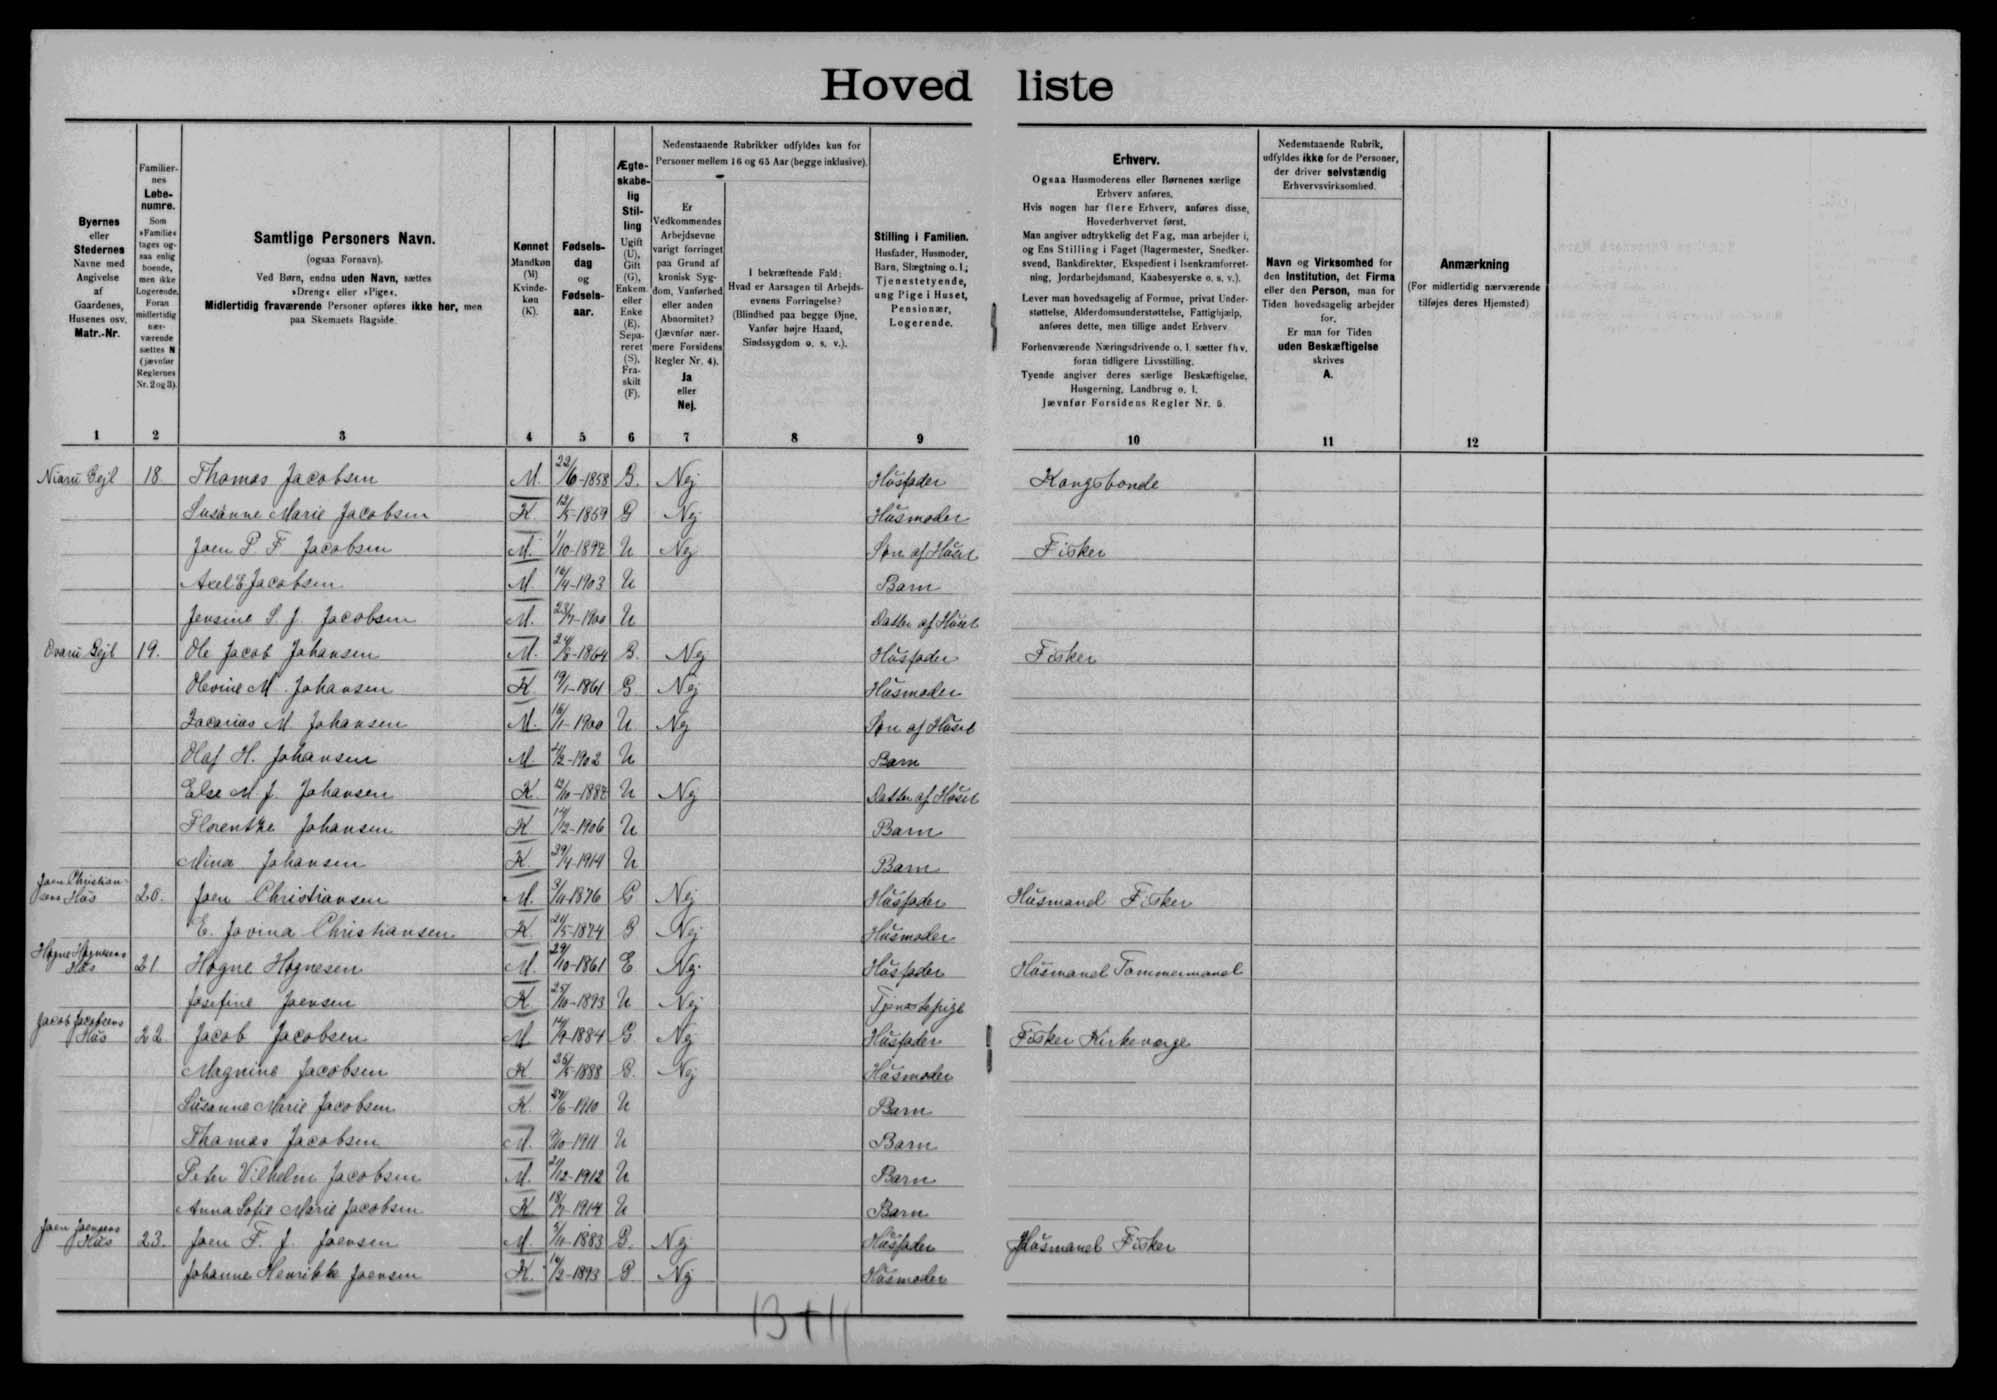 Hovedliste
Byernes eller Stedernes Navne med Angivelse af Gaardenes, Husenes osv. Matr.-Nr.
Familiernes Løbenumre. Som »Familie« tages ogsaa enlig boende, men ikke Logerende. Foran midlertidig nærværende sættes N (jævnfør Reglernes Nr. 2 og 3).
Samtlige Personers Navn. (ogsaa Fornavn). Ved Børn, endnu uden Navn, sættes »Dreng« eller »Pige«. Midlertidig fraværende Personer opføres ikke her, men paa Skemaets Bagside.
Kønnet Mandkøn (M) Kvindekøn (K).
Fødselsdag og Fødselsaar.
Ægteskabelig Stilling Ugift (U), Gift (G), Enkem. eller Enke (E). Separeret (S), Fraskilt (F).
Nedenstaaende Rubrikker udfyldes kun for Personer mellem 16 og 65 Aar (begge inklusive).
Er Vedkommendes Arbejdsevne varigt forringet paa Grund af kronisk Sygdom, Vanførhed eller anden Abnormitet? (Jævnfør nærmere Forsidens Regler Nr. 4). Ja eller Nej.
I bekræftende Fald: Hvad er Aarsagen til Arbejdsevnens Forringelse? (Blindhed paa begge Øjne, Vanfør højre Haand, Sindssygdom o. s. v.).
Stilling i Familien. Husfader, Husmoder, Barn, Slægtning o. l.; Tjenestetyende, ung Pige i Huset, Pensionær, Logerende.
Erhverv.
Ogsaa Husmoderens eller Børnenes særlige Erhverv anføres.
Hvis nogen har flere Erhverv, anføres disse, Hovederhvervet først.
Man angiver udtrykkelig det Fag, man arbejder i, og Ens Stilling i Faget (Bagermester, Snedkersvend, Bankdirektør, Ekspedient i Isenkramforretning, Jordarbejdsmand, Kaabesyerske o. s. v.).
Lever man hovedsagelig af Formue, privat Understøttelse, Alderdomsunderstøttelse, Fattighjælp, anføres dette, men tillige andet Erhverv
Forhenværende Næringsdrivende o. l. sætter fhv. foran tidligere Livsstilling.
Tyende angiver deres særlige Beskæftigelse, Husgerning, Landbrug o. l.
Jævnfør Forsidens Regler Nr. 5.
Nedenstaaende Rubrik, udfyldes ikke for de Personer, der driver selvstændig Erhvervsvirksomhed.
Navn og Virksomhed for den Institution, det Firma eller den Person, man for Tiden hovedsagelig arbejder for.
Er man for Tiden uden Beskæftigelse skrives A.
Anmærkning (For midlertidig nærværende tilføjes deres Hjemsted)
1 2 3 4 5 6 7 8 9 10 11 12
Niaru Gejl 18. Thomas Jacobsen M. 22/6-1858 G. Nej Husfader Kongsbonde
Susanne Marie Jacobsen K. 12/5-1859 G Nej Husmoder
Joen P F Jacobsen M. 1/10-1892 U Nej Søn af Huset Fisker
Axel E Jacobsen M 10/4-1903 U Barn
Jensine S. J. Jacobsen M. 23/7-1900 U Datter af Huset
Ovaru Gejl 19. Ole Jacob Johansen M. 24/8-1864 G. Nej Husfader Fisker
Olevine M. Johansen K. 19/1-1861 G Nej Husmoder
Zacarias M Johansen M. 16/1-1900 U Nej Søn af Huset
Olaf H. Johansen M 4/2-1902 U Barn
Else M. J. Johansen K. 12/10-1882 U Nej Datter af Huset
Florentze Johansen K 14/12-1906 U Barn
Mina Johansen K. 29/4-1914 U Barn
Joen Christiansens Hus 20. Joen Christiansen M. 9/11-1876 G Nej Husfader Husmand Fisker
E. Jovina Christiansen K. 21/5-1874 G Nej Husmoder
Høgne Høgnesens Hus 21 Høgne Høgnesen M. 29/10-1861 E Nej. Husfader Husmand Tømmermand
Josefine Joensen K 25/10-1893 U Nej Tjenestepige
Jacob Jacobsens Hus 22 Jacob Jacobsen M 14/9-1884 G Nej Husfader Fisker Kirkeværge
Magnine Jacobsen K 25/5-1888 G. Nej Husmoder
Susanne Marie Jacobsen K. 27/6-1910 U Barn
Thomas Jacobsen M. 9/10-1911 U Barn
Peter Vilhelm Jacobsen M. 21/12-1912 U Barn
Anna Sofie Marie Jacobsen K 18/7-1914 U Barn
Joen Joensens Hus 23. Joen F. J. Joensen M. 5/11-1883 G. Nej Husfader Husmand Fisker
Johanne Henrikke Joensen K. 14/2-1893 G Nej Husmoder
13+11